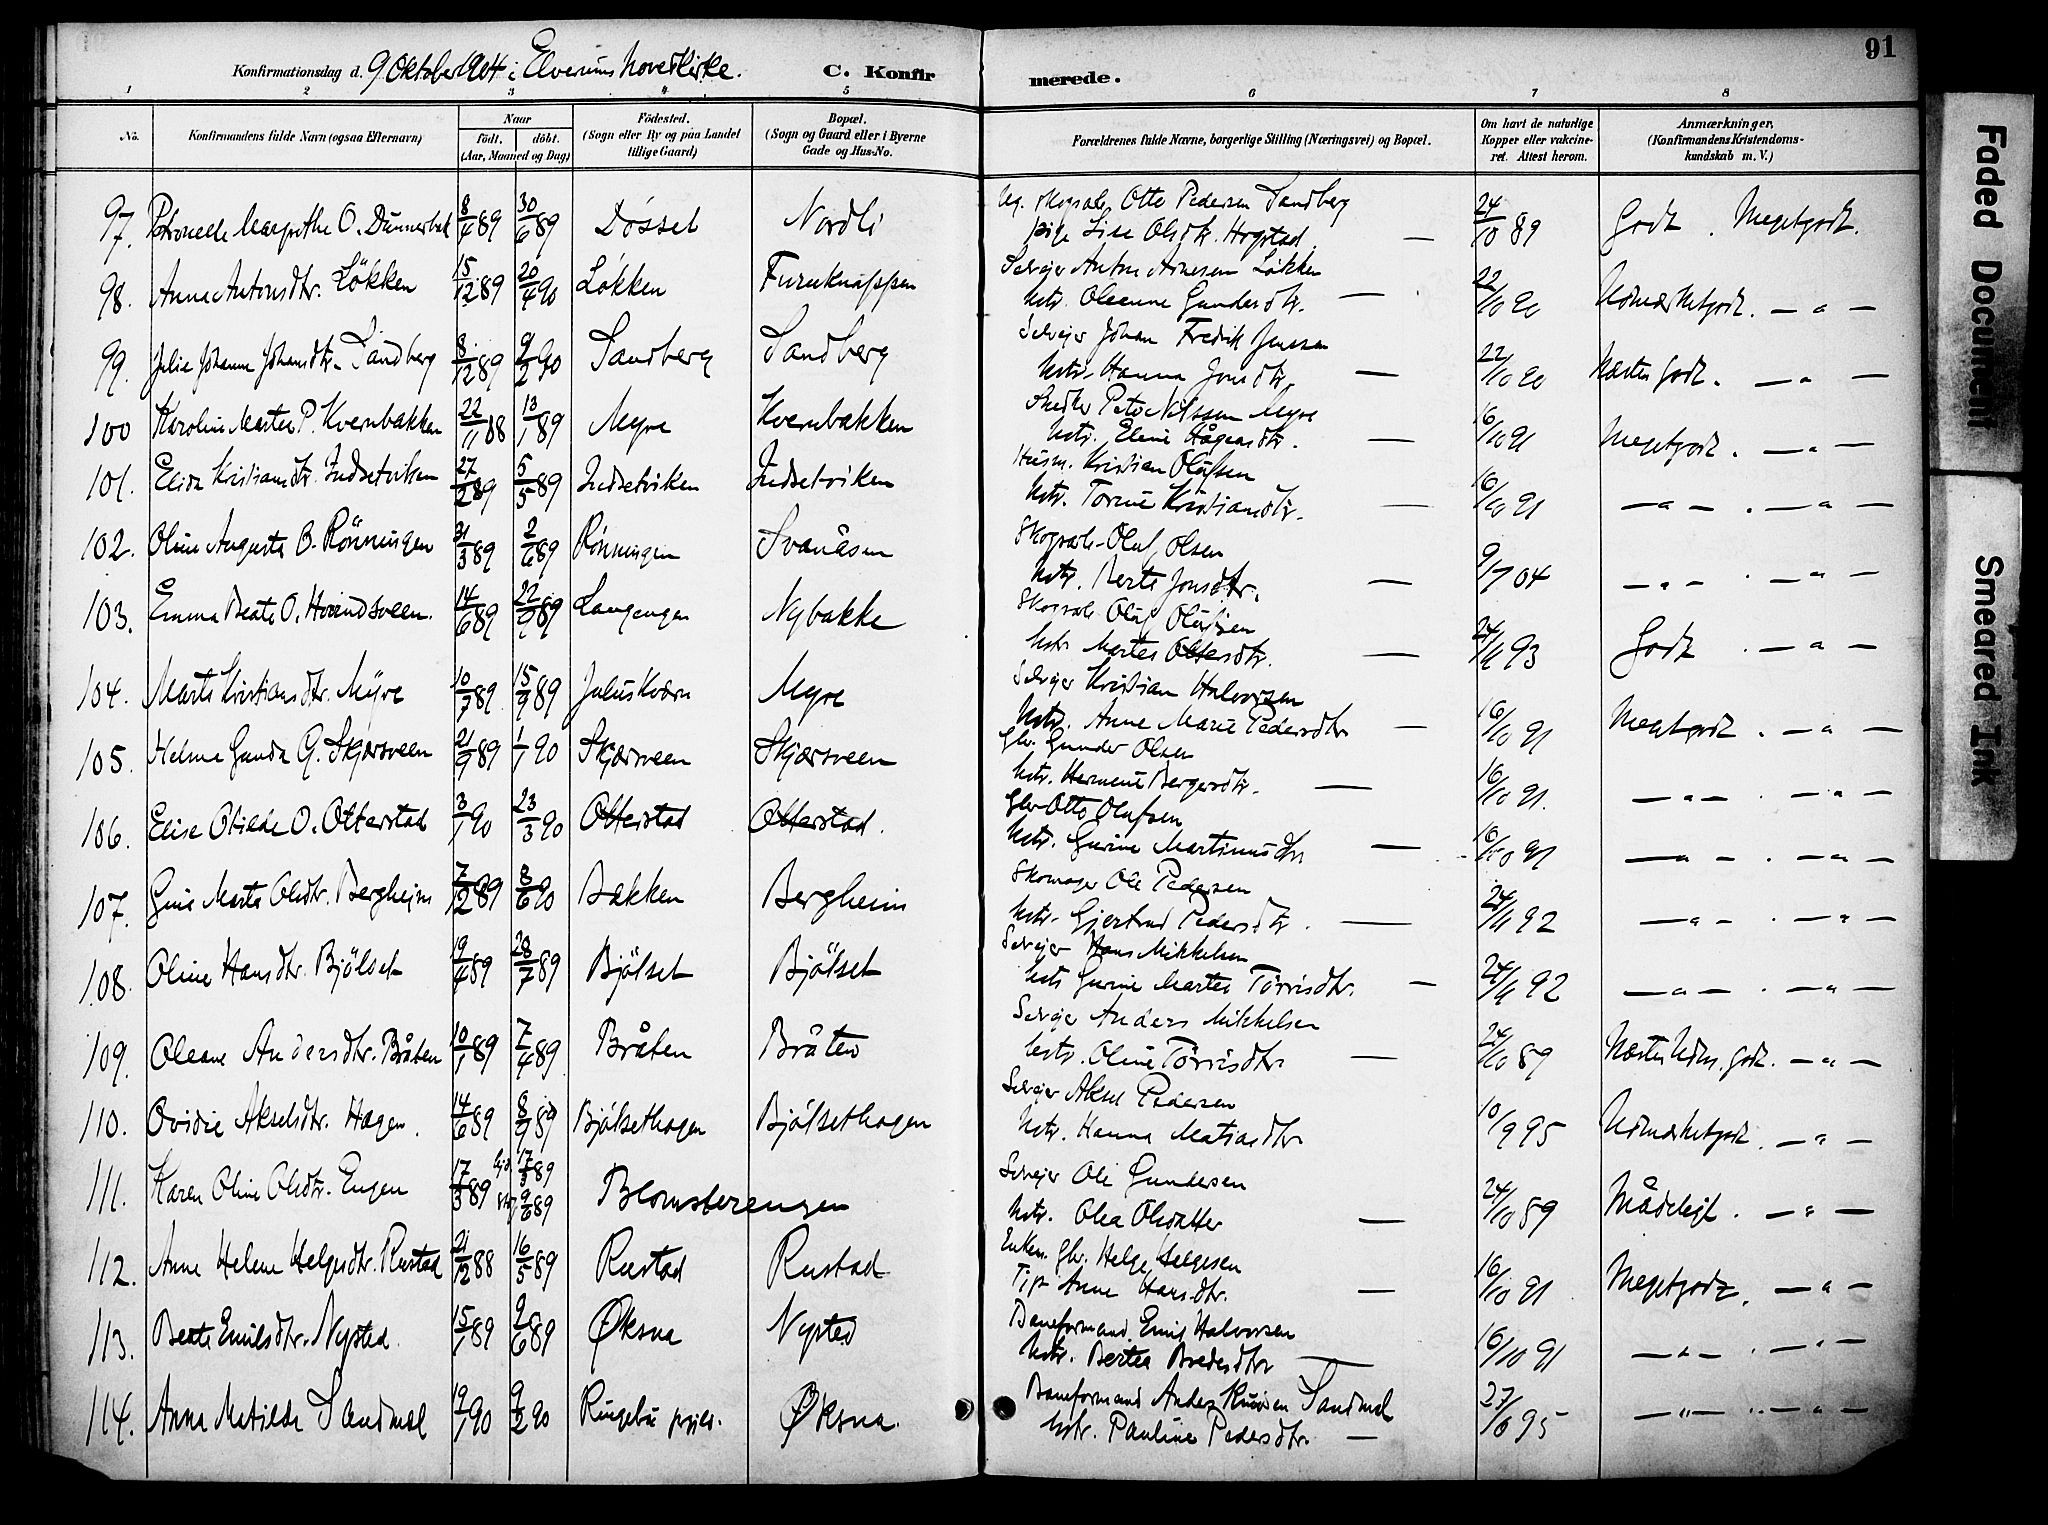 91
Konfirmationsdag d. 9 Oktober 1904 i Elverums hovedkirke. C. Konfirmerede.
1 2 3 4 5 6 7 8
No. Konfirmandens fulde Navn (ogsaa Efternavn) Naar födt. döbt. (Aar, Maaned og Dag) Födested. (Sogn eller By og paa Landet tillige Gaard) Bopæl. (Sogn og Gaard eller i Byerne Gade og Hus-No. Forældrenes fulde Navne, borgerlige Stilling (Næringsvei) og Bopæl. Om havt de naturlige Kopper eller vakcineret. Attest herom. Anmærkninger, (Konfirmandens Kristendomskundskab m. V.)
97. Petronelle Margrethe O. 8/4 89 30/6 89 Døsset Nordli Otto Pedersen Sandberg
pige Lise Olsdtr. Hogstad — 24/10 89 Godt . Megetgodt.
98. Anne Antonsdtr. Løkken 15/12 89 20/4 90 Løkken Furuknappen Selvejer Anton Arnesen Løkken
Hstr. Oleanne Gundersdtr. — 22/10 90 Udmærketgodt. — " —
99. Julie Johanne Johansdtr. Sandberg 8/12 89 9/2 90 Sandberg Sandberg Selvejer Johan Fredik Jenssen
Hstr. Hanna Jonsdtr. — 22/10 90 Næsten godt. — " —
100 Karoline Martea P. Kvernbakken 22/11 88 13/1 89 Myre Kvernbakken Peter Nilssen Myre
Hstr. Eline Hågensdtr. — 16/10 91 Megetgodt. — " —
101. Elida Kristiansdtr. Indsetviken 27/2 89 5/5 89 Indsetviken Indsetviken Husm. Kristian Olafsen
Hstr. Torine Kristiansdtr. — 16/10 91 — " — . — " —
102. Oline Augusta O. Rønningen 31/3 89 2/6 89 Rønningen Svanåsen Skogsarb. Oluf Olsen
Hstr. Berte Jonsdtr. — 9/7 04 — " — . — " —
103. Emma Beate O. 14/6 89 22/9 89 Langengen Nybakke Skogsarb. Oluf Olufsen
Hstr Martea Ottersdtr. — 24/11 93 Godt . — " —
104. Marte Kristiansdtr. Myre 10/7 89 15/9 89 Juliuskværn Myre Selvejer Kristian Halvorsen
Hstr. Anne Marie Pedersdtr — 16/10 91 Megetgodt . — " —
105. Helene Gunda G. Skjærsveen 21/9 89 1/1 90 Skjærsveen Skjærsveen Gbr. Gunder Olsen
Hstr. Hermene Bergersdtr. — 16/10 91. — " — . — " —
106. Elise Otilde O. Otterstad 3/1 90 23/3 90 Otterstad Otterstad. Gbr Otto Olufsen
Hstr. Gurine Martinusdtr — 16/10 91 — " — . — " —
107. Gina Marta Olsdtr. Bergheim 7/12 89 8/6 90 Bakken Bergheim Skomager Ole Pedersen
Hstr. Gjertrud Pedersdtr . — 24/11 92 — " — . — " —
108. Oline Hansdtr. Bjølset 19/4 89 28/7 89 Bjølset Bjølset Selvejer Hans Mikkelsen
Hstr Gurine Martea Tørrisdtr. — 24/11 92 — " — . — " —
109. Oleane Andersdtr. Bråten 10/1 89 7/4 89 Bråten Bråten Selvejer Anders Mikkelsen
Hstr. Oline Tørrisdtr. — 24/10 89 Næsten Udm. godt. — " —
110. Ovidie Akselsdtr. Hagen. 14/6 89 8/9 89 Bjølsethagen Bjølsethagen Selvejer Aksel Pedersen
Hstr. Hanna Matiasdtr 10/9 95 Udmærketgodt. — " —
111. Karen Oline Olsdtr. Engen 17/3 89 hjd. 17/3 89 9/6 89 Blomsterengen Selvejer Ole Gundersen
Hstr. Olea Olsdatter — 24/10 89 Mådeligt . — " —
112. Anne Helene Helgesdtr. Rustad 21/12 88 16/5 89 Rustad Rustad Enkem. Gbr. Helge Helgesen
Anne Hansdtr. — 16/10 91 Megetgodt. — " —
113. Beate Emilsdtr. Nysted. 15/1 89 9/6 89 Øksna Nysted Baneformand. Emil Halvorsen
Hstr. Bertea Bredesdtr — 16/10 91 — " — . — " —
114. Anna Matilde Sandmæl 19/1 90 9/2 90 Ringebu prgjld. Øksna. Baneformand Anders Sandmæl
Hstr. Pauline Pedersdtr. — 27/6 95 — " — . — " —
Faded Document
Smeared Ink